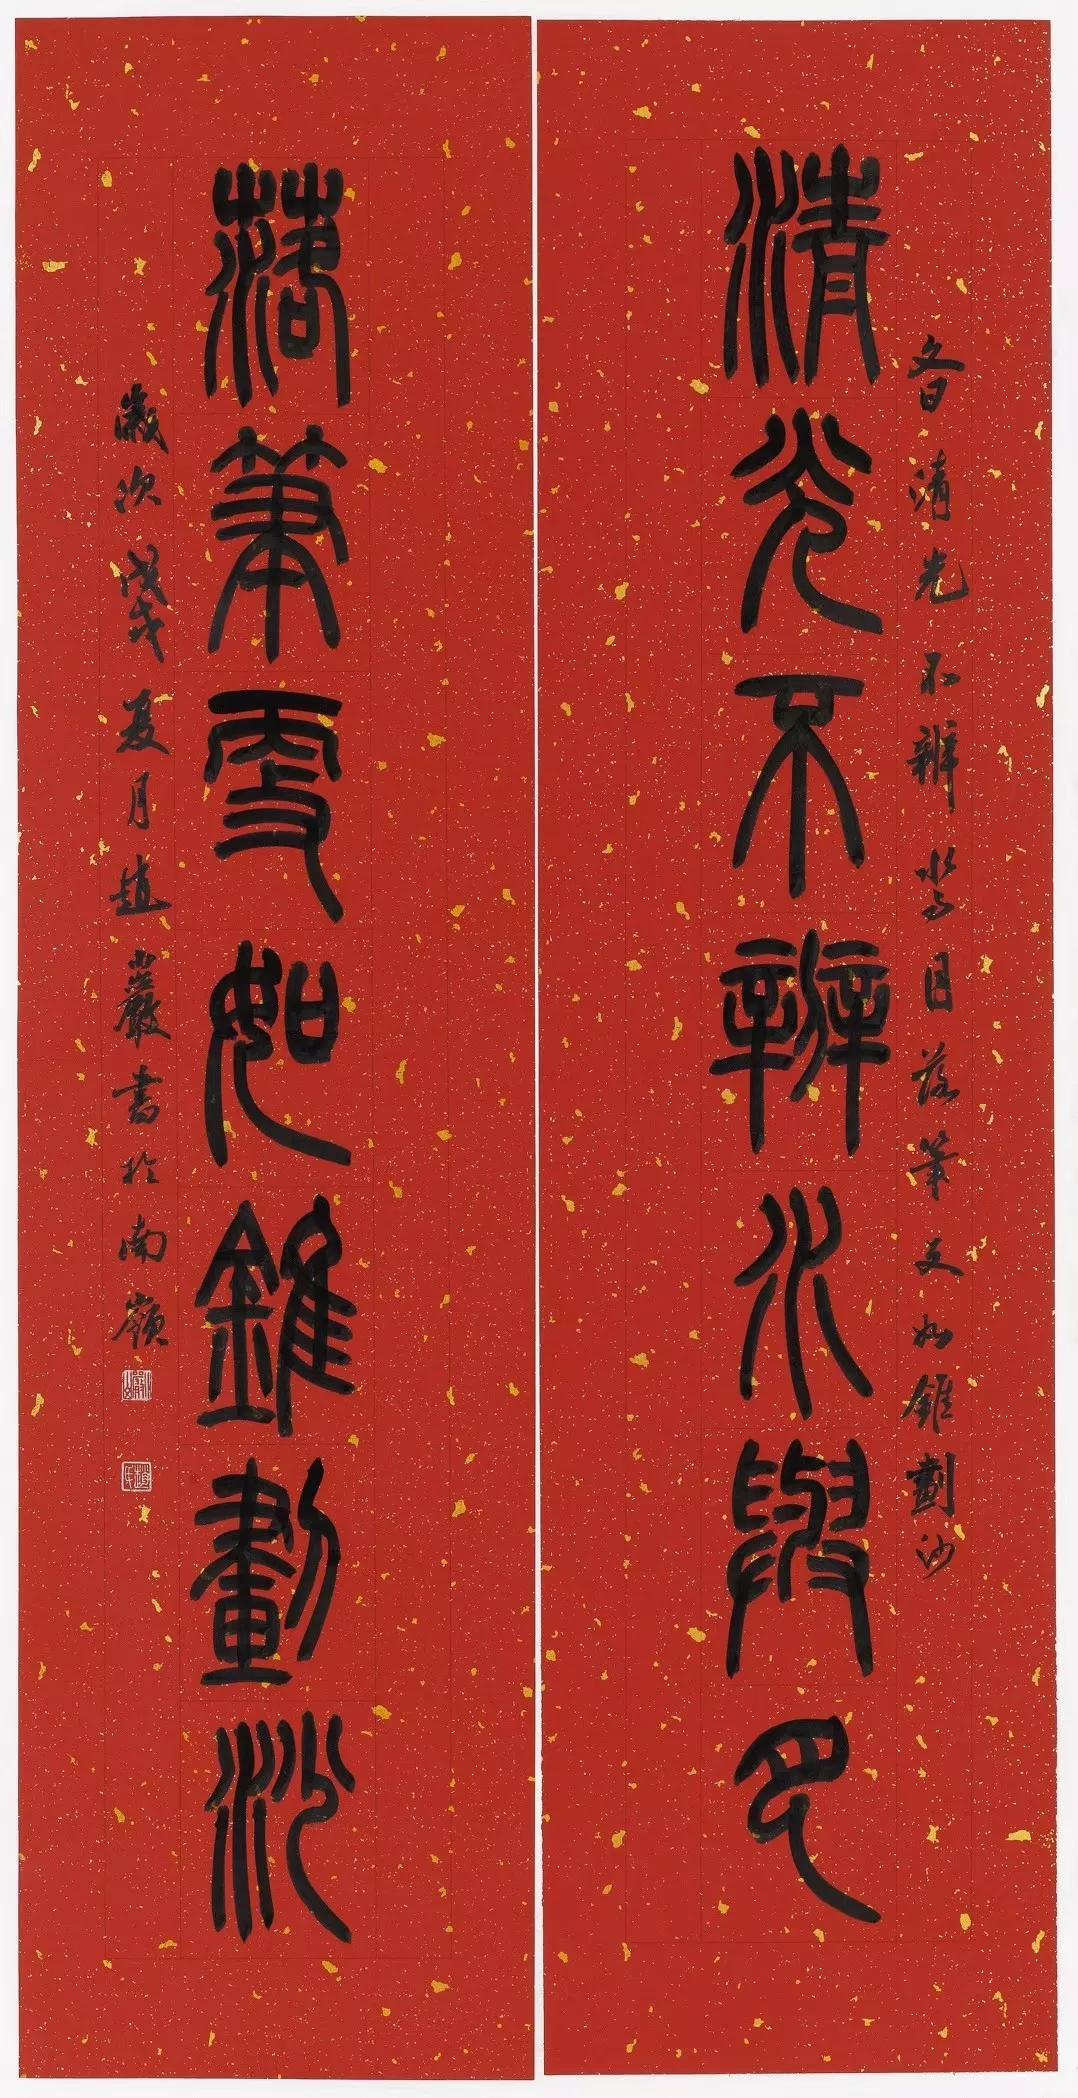 文曰清光不辨水與月落筆更如錐劃沙
清光不辨水與月
落筆更如錐劃沙
歲次戊戌夏月趙巖書於南嶺